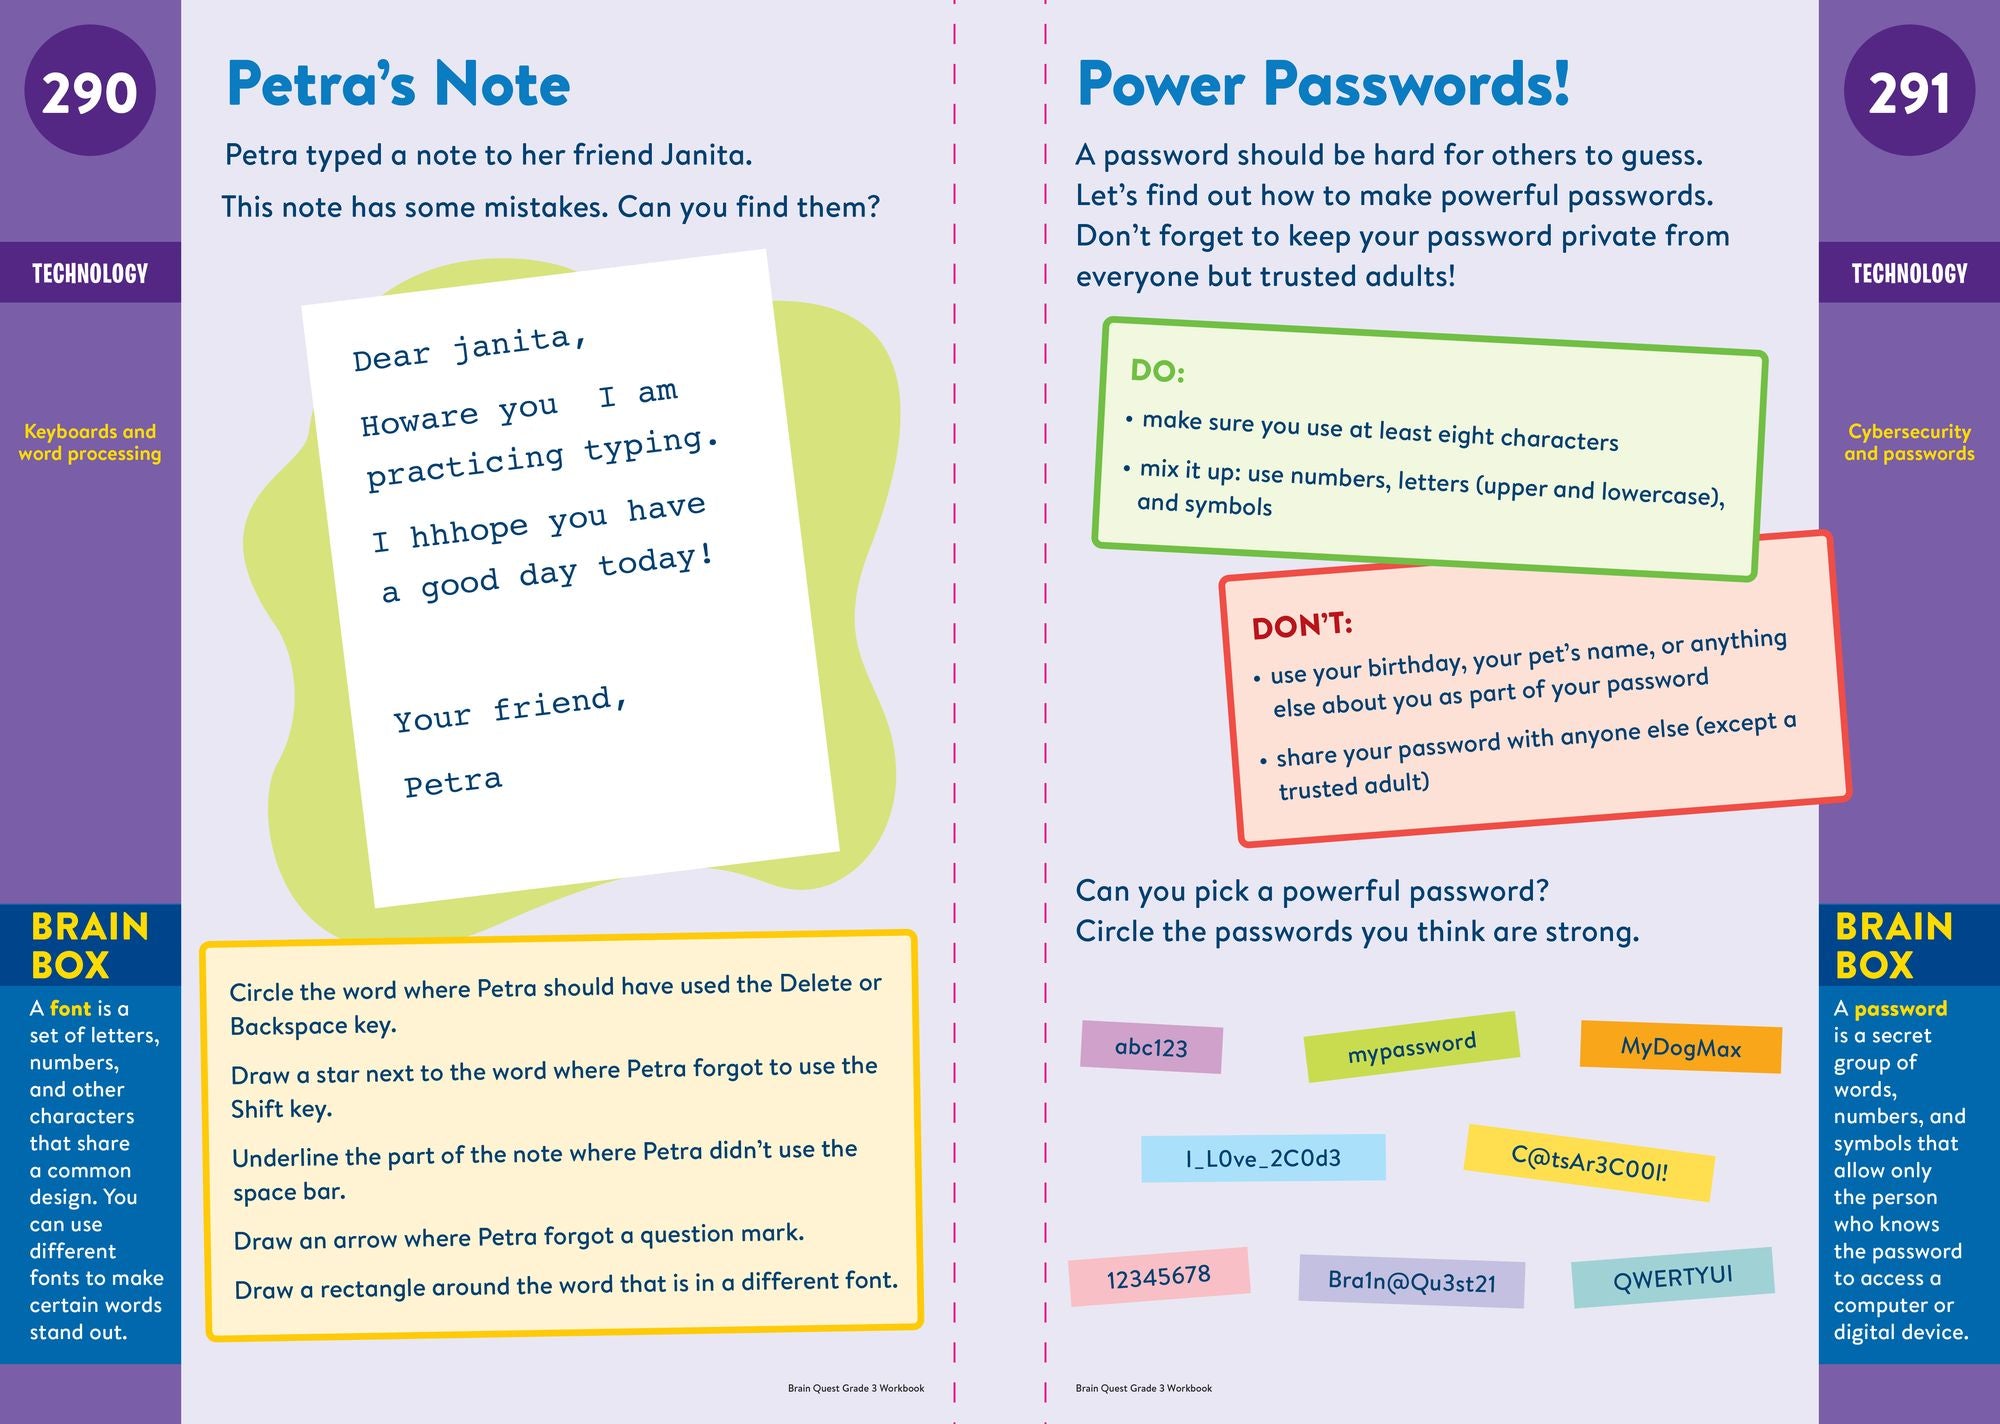 290
TECHNOLOGY
Keyboards and
word processing
BRAIN
BOX
A font is a
set of letters,
numbers,
and other
characters
that share
a common
design. You
can use
different
fonts to make
certain words
stand out.
Petra's Note
Petra typed a note to her friend Janita.
This note has some mistakes. Can you find them?
Dear janita,
Howare you  I am
practicing typing.
I hhhope you have
a good day today!
Your friend,
Petra
Circle the word where Petra should have used the Delete or
Backspace key.
Draw a star next to the word where Petra forgot to use the
Shift key.
Underline the part of the note where Petra didn't use the
space bar.
Draw an arrow where Petra forgot a question mark.
Draw a rectangle around the word that is in a different font.
Brain Quest Grade 3 Workbook
Power Passwords!
A password should be hard for others to guess.
Let's find out how to make powerful passwords.
Don't forget to keep your password private from
everyone but trusted adults!
DO:
• make sure you use at least eight characters
• mix it up: use numbers, letters (upper and lowercase),
and symbols
DON'T:
• use your birthday, your pet's name, or anything
else about you as part of your password
• share your password with anyone else (except a
trusted adult)
Can you pick a powerful password?
Circle the passwords you think are strong.
abc123
mypassword
MyDogMax
I_L0ve_2C0d3
C@tsAr3C00l!
12345678
Bra1n@Qu3st21
QWERTYUI
Brain Quest Grade 3 Workbook
291
TECHNOLOGY
Cybersecurity
and passwords
BRAIN
BOX
A password
is a secret
group of
words,
numbers, and
symbols that
allow only
the person
who knows
the password
to access a
computer or
digital device.